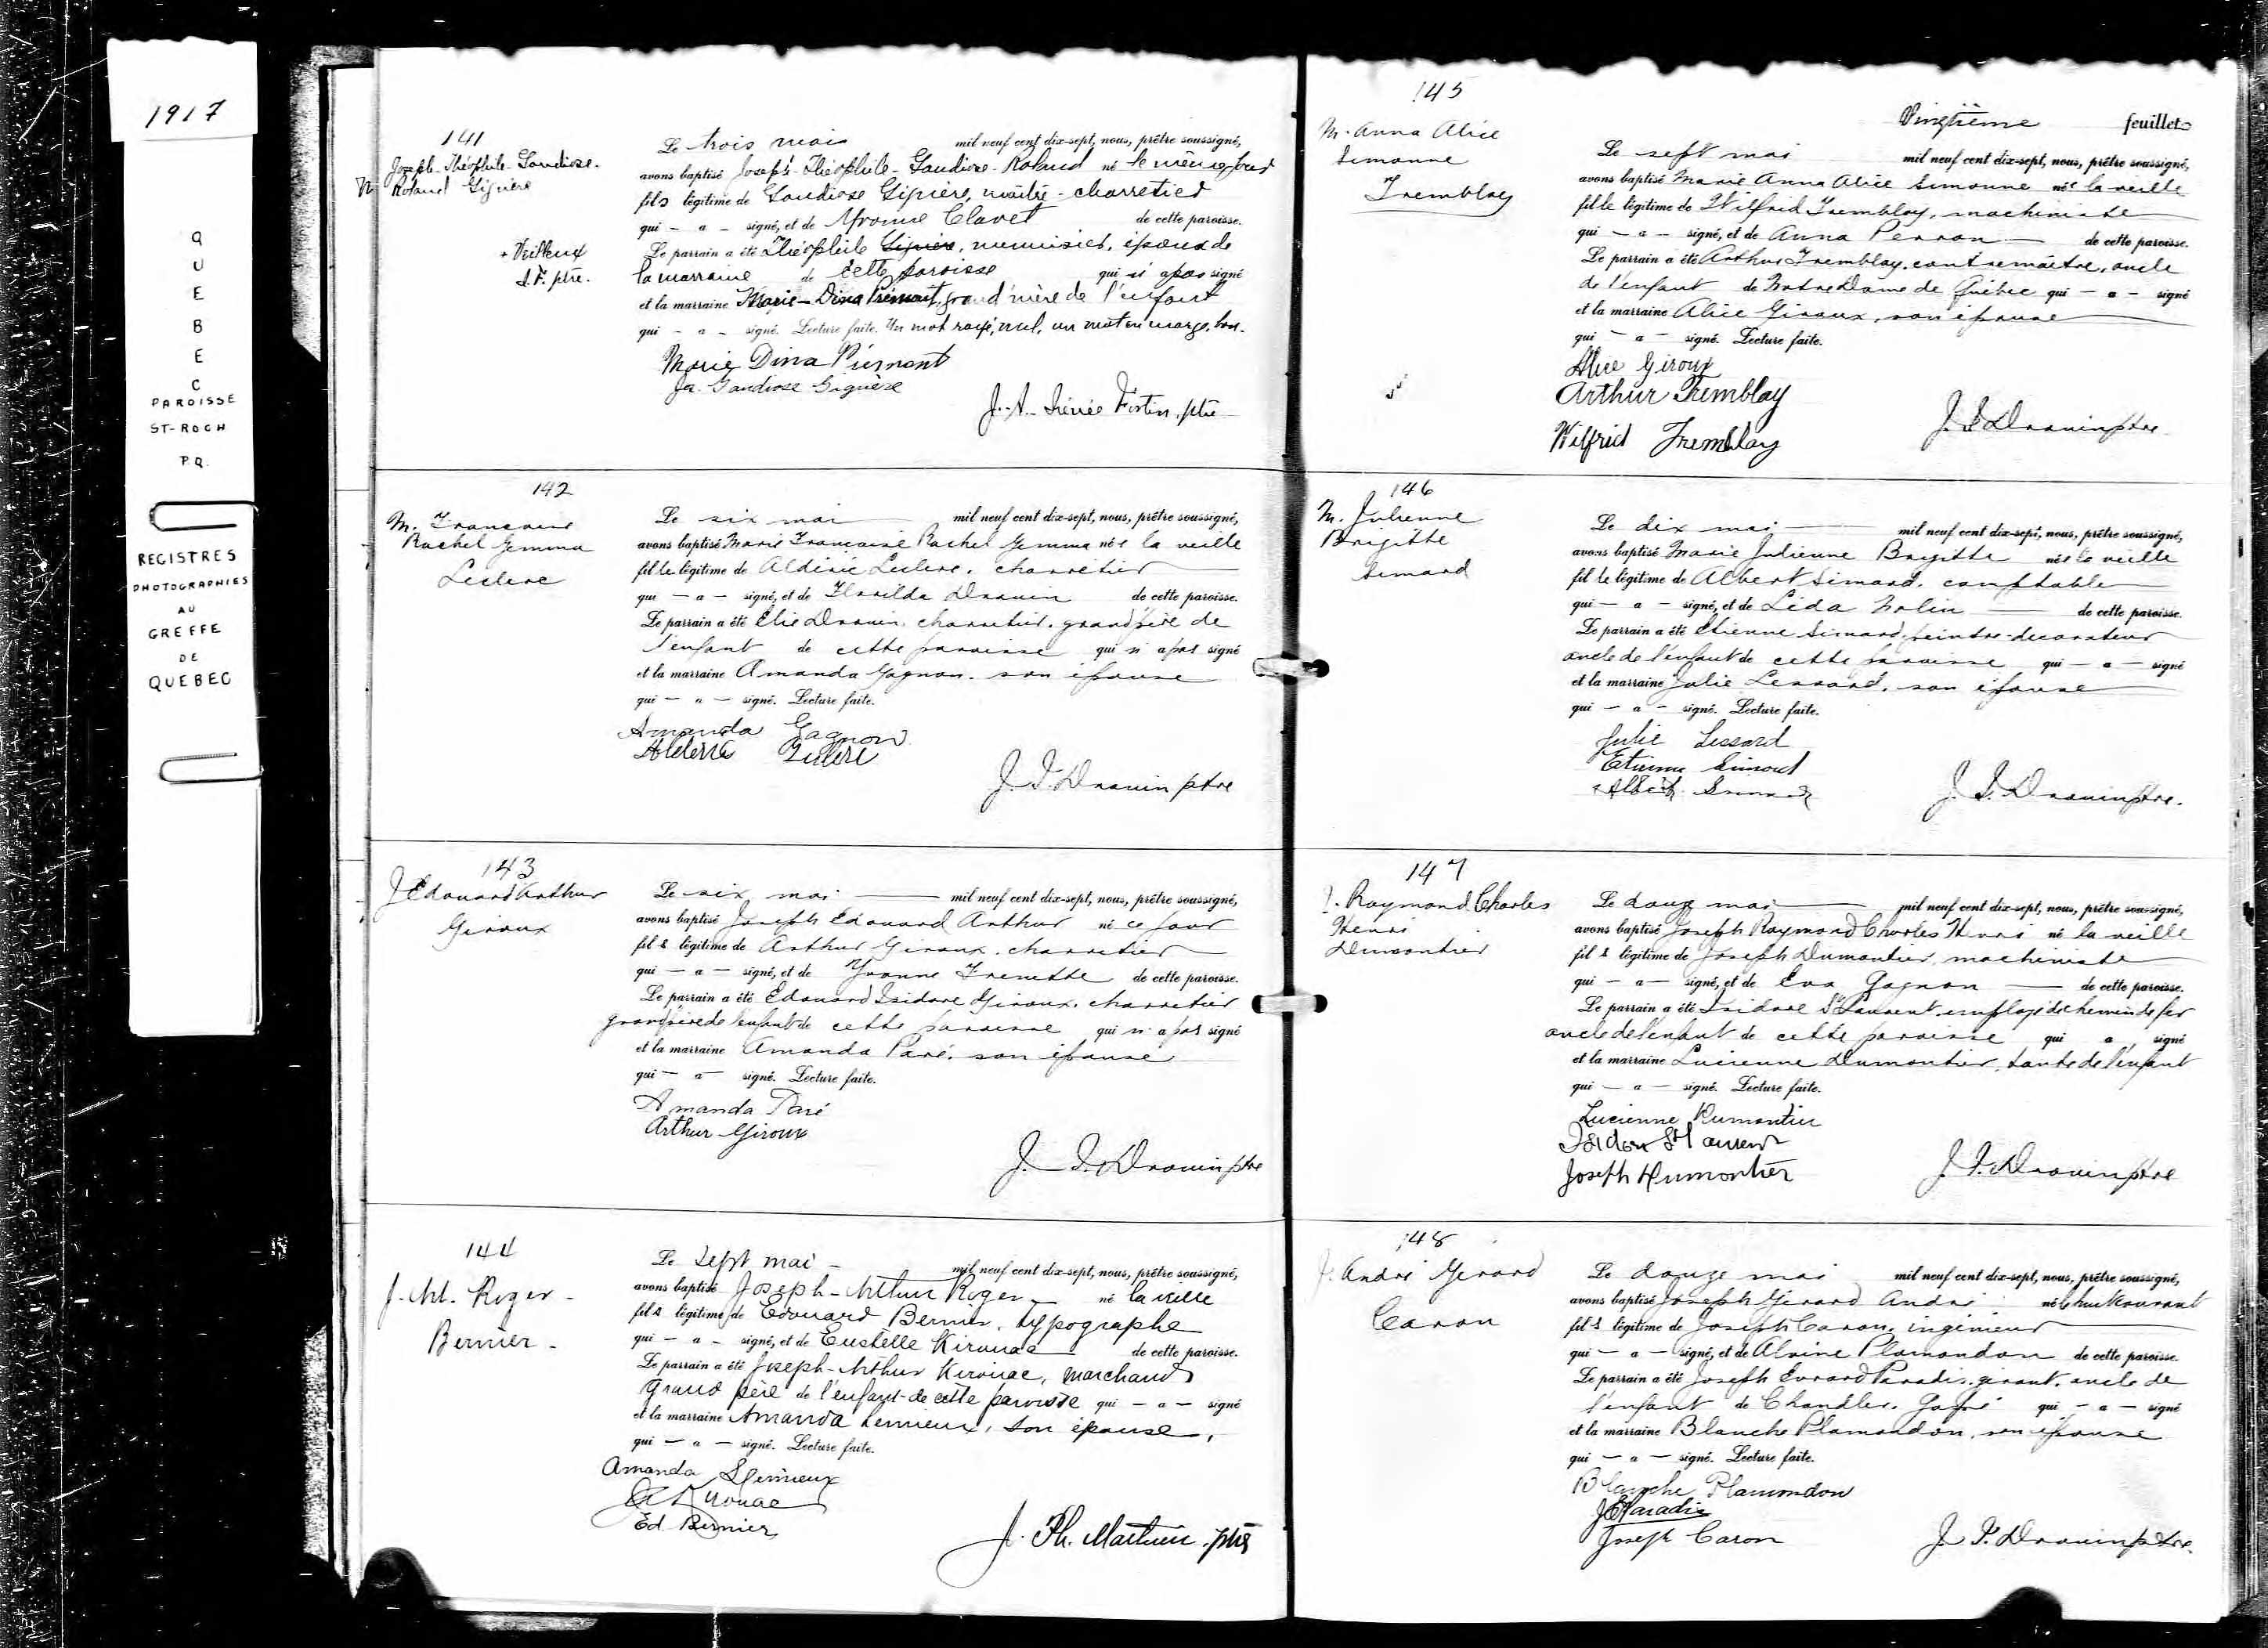 1917
QUEBEC
PAROISSE
ST-ROCH
P.Q.
REGISTRES
PHOTOGRAPHIES
AU
GREFFE
DE
QUEBEC
141
Joseph-Théophile-Gaudiose-
Roland Giguère
+ Veilleux
J. F. ptre.
Le trois mai mil neuf cent dix-sept, nous, prêtre soussigné,
avons baptisé Joseph-Théophile-Gaudiose-Roland né le même jour
fils légitime de Gaudiose Giguère, maître-charretier
qui - a - signé, et de Yvonne Clavet de cette paroisse.
Le parrain a été Théophile Giguère, menuisier, époux de
la marraine de cette paroisse qui n'a pas signé
et la marraine Marie-Dina Piémont, grand'mère de l'enfant
qui - a - signé. Lecture faite. Un mot rayé, nul, un mot en marge, bon.
Marie Dina Piémont
Jos. Gaudiose Giguère
J.-A.-Irénée Fortin, ptre
142
M. Françoise
Rachel Gemma
Leclerc
Le six mai mil neuf cent dix-sept, nous, prêtre soussigné,
avons baptisé Marie Françoise Rachel Gemma née la veille
fille légitime de Aldéric Leclerc, charretier
qui - a - signé, et de Drouin de cette paroisse.
Le parrain a été Elie Drouin, charretier, grand'père de
l'enfant de cette paroisse qui n'a pas signé
et la marraine Amanda Gagnon, son épouse
qui - a - signé. Lecture faite.
Amanda Gagnon
Leclerc
J. I. Drouin ptre
143
J Edouard Arthur
Giroux
Le six mai mil neuf cent dix-sept, nous, prêtre soussigné,
avons baptisé Joseph Edouard Arthur né ce jour
fils légitime de Arthur Giroux, charretier
qui - a - signé, et de Yvonne Frenette de cette paroisse.
Le parrain a été Edouard Isidore Giroux, charretier
grand'père de l'enfant de cette paroisse qui n'a pas signé
et la marraine Amanda Paré, son épouse
qui - a - signé. Lecture faite.
Amanda Paré
Arthur Giroux
J. I. Drouin ptre
144
J.-Art. Roger-
Bernier-
Le sept mai - mil neuf cent dix-sept, nous, prêtre soussigné,
avons baptisé Joseph-Arthur Roger né la veille
fils légitime de Edouard Bernier, typographe
qui - a - signé, et de Eustelle Kirouac de cette paroisse.
Le parrain a été Joseph-Arthur Kirouac, marchand
grand père de l'enfant de cette paroisse qui - a - signé
et la marraine Amanda Lemieux, son épouse,
qui - a - signé. Lecture faite.
Amanda Lemieux
Kirouac
Ed Bernier
J. Ph. Mathieu, ptre
Vingtième feuillet
145
M. Anna Alice
Simonne
Tremblay
Le sept mai mil neuf cent dix-sept, nous, prêtre soussigné,
avons baptisé Marie Anna Alice Simonne née la veille
fille légitime de Wilfrid Tremblay, machiniste
qui - a - signé, et de Anna Perron de cette paroisse.
Le parrain a été Arthur Tremblay, contremaître, oncle
de l'enfant de Notre Dame de Québec qui - a - signé
et la marraine Alice Giroux, son épouse
qui - a - signé. Lecture faite.
Alice Giroux
Arthur Tremblay
Wilfrid Tremblay
J. I. Drouin ptre
146
M. Julienne
Brigitte
Simard
Le dix mai mil neuf cent dix-sept, nous, prêtre soussigné,
avons baptisé Marie Julienne Brigitte née la veille
fille légitime de Albert Simard, comptable
qui - a - signé, et de Léda Nolin de cette paroisse.
Le parrain a été Etienne Simard, peintre-décorateur
oncle de l'enfant de cette paroisse qui - a - signé
et la marraine Julie Lessard, son épouse
qui - a - signé. Lecture faite.
Julie Lessard
Etienne Simard
Albert Simard
J. I. Drouin ptre.
147
J. Raymond Charles
Henri
Dumontier
Le douze mai mil neuf cent dix-sept, nous, prêtre soussigné,
avons baptisé Joseph Raymond Charles Henri né la veille
fils légitime de Joseph Dumontier, machiniste
qui - a - signé, et de Eva Gagnon de cette paroisse.
Le parrain a été Isidore St Laurent, employé de chemin de fer
oncle de l'enfant de cette paroisse qui a signé
et la marraine Lucienne Dumontier, tante de l'enfant
qui - a - signé. Lecture faite.
Lucienne Dumontier
Isidore St Laurent
Joseph Dumontier
J. I. Drouin ptre
148
J. André Gérard
Caron
Le douze mai mil neuf cent dix-sept, nous, prêtre soussigné,
avons baptisé Joseph Gérard André né le huit courant
fils légitime de Joseph Caron, ingénieur
qui - a - signé, et de Alvine Plamondon de cette paroisse.
Le parrain a été Joseph Evrard Paradis, gérant, oncle de
l'enfant de Chandler, Gaspé qui - a - signé
et la marraine Blanche Plamondon, son épouse
qui - a - signé. Lecture faite.
Blanche Plamondon
J E Paradis
Joseph Caron
J. I. Drouin ptre.